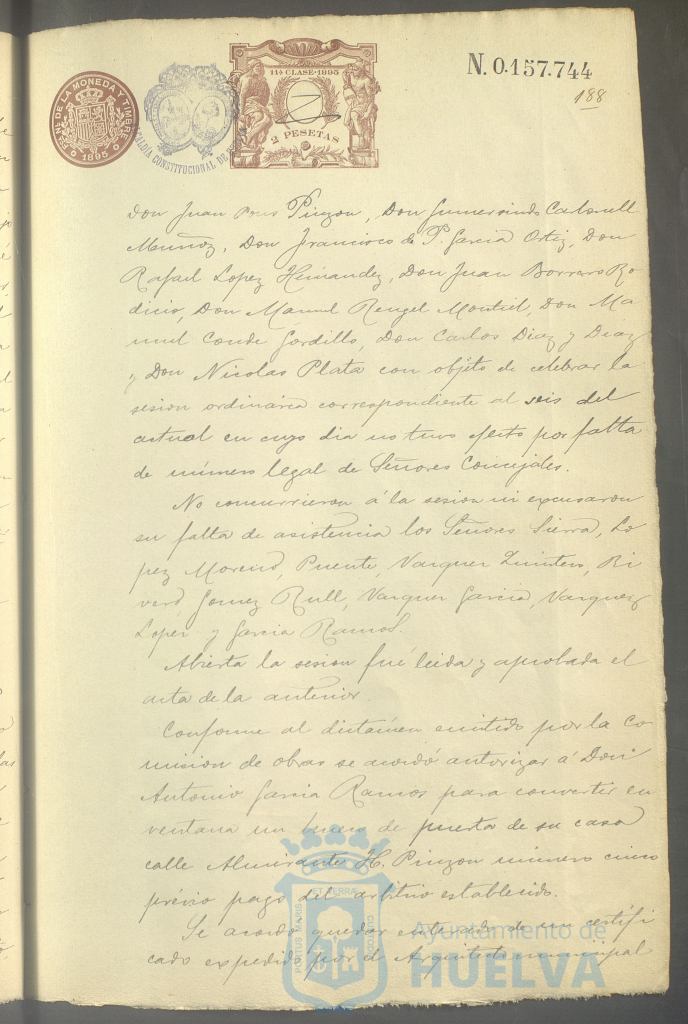 FAB. NAL. DE LA MONEDA Y TIMBRE
1895
ALCALDIA CONSTITUCIONAL DE
11ª CLASE-1895
2 PESETAS
N. 0.157.744
188
Don Juan Pons Pinzon, Don Gumersindo Carbonell
Muñoz, Don Francisco de P. Garcia Ortiz, Don
Rafael Lopez Hernandez, Don Juan Borrero Ro
dicio, Don Manuel Rengel Montiel, Don Ma
nuel Conde Gordillo, Don Carlos Diaz y Diaz
y Don Nicolas Plata con objeto de celebrar la
sesion ordinaria correspondiente al seis del
actual en cuyo dia no tuvo efecto por falta
de número legal de Señores Concejales.
No concurrieron á la sesion ni excusaron
su falta de asistencia los Señores Sierra, Lo
pez Moreno, Puente, Vazquez Quintero, Ri
vero, Gomez Rull, Vazquez Garcia, Vazquez
Lopez y Garcia Ramos.
Abierta la sesion fué leida y aprobada el
acta de la anterior.
Conforme al dictámen emitido por la Co
mision de obras se acordó autorizar á Don
Antonio Garcia Ramos para convertir en
ventana un hueco de puerta de su casa
calle Almirante H. Pinzon número cinco
prévio pago del arbitrio establecido.
Se acordó quedar enterado de un certifi
cado expedido por el Arquitecto municipal
PORTUS MARIS ET TERRAE CUSTODIA
Ayuntamiento de
HUELVA